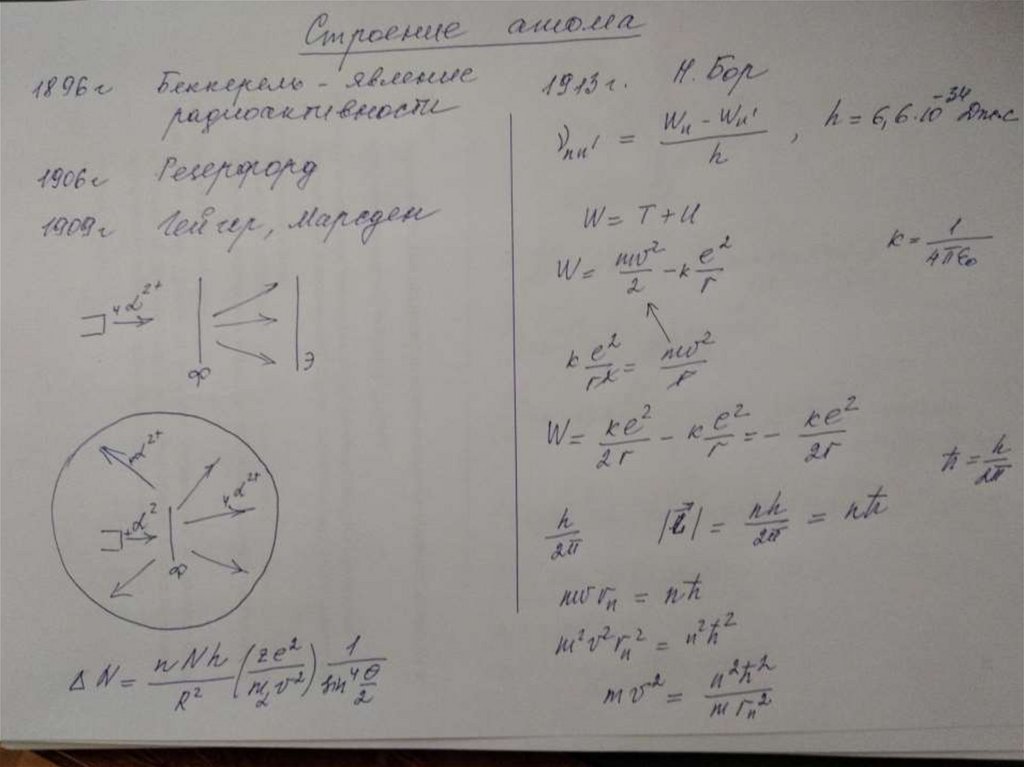 Строение атома
1896г Беккерель - явление
радиоактивности
1906г Резерфорд
1909г Гейгер, Марсден
4α²⁺
Ф Э
α²⁺
4α²⁺
α²
Ф
ΔN = nNh/R² (ze²/m_α v²) 1/sin⁴ θ/2
1913г. Н. Бор
ν_nn' = (W_n - W_n')/h , h = 6,6·10⁻³⁴ Дж·с
W = T + U
k = 1/4πε₀
W = mv²/2 - k e²/r
k e²/r² = mv²/r
W = ke²/2r - k e²/r = - ke²/2r
ħ = h/2π
h/2π |L⃗| = nh/2π = nħ
mvr_n = nħ
m²v²r_n² = n²ħ²
mv² = n²ħ²/mr_n²